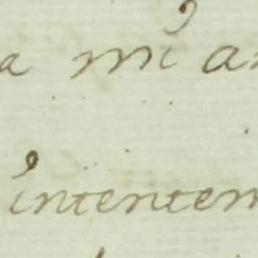 a mi a
intentem